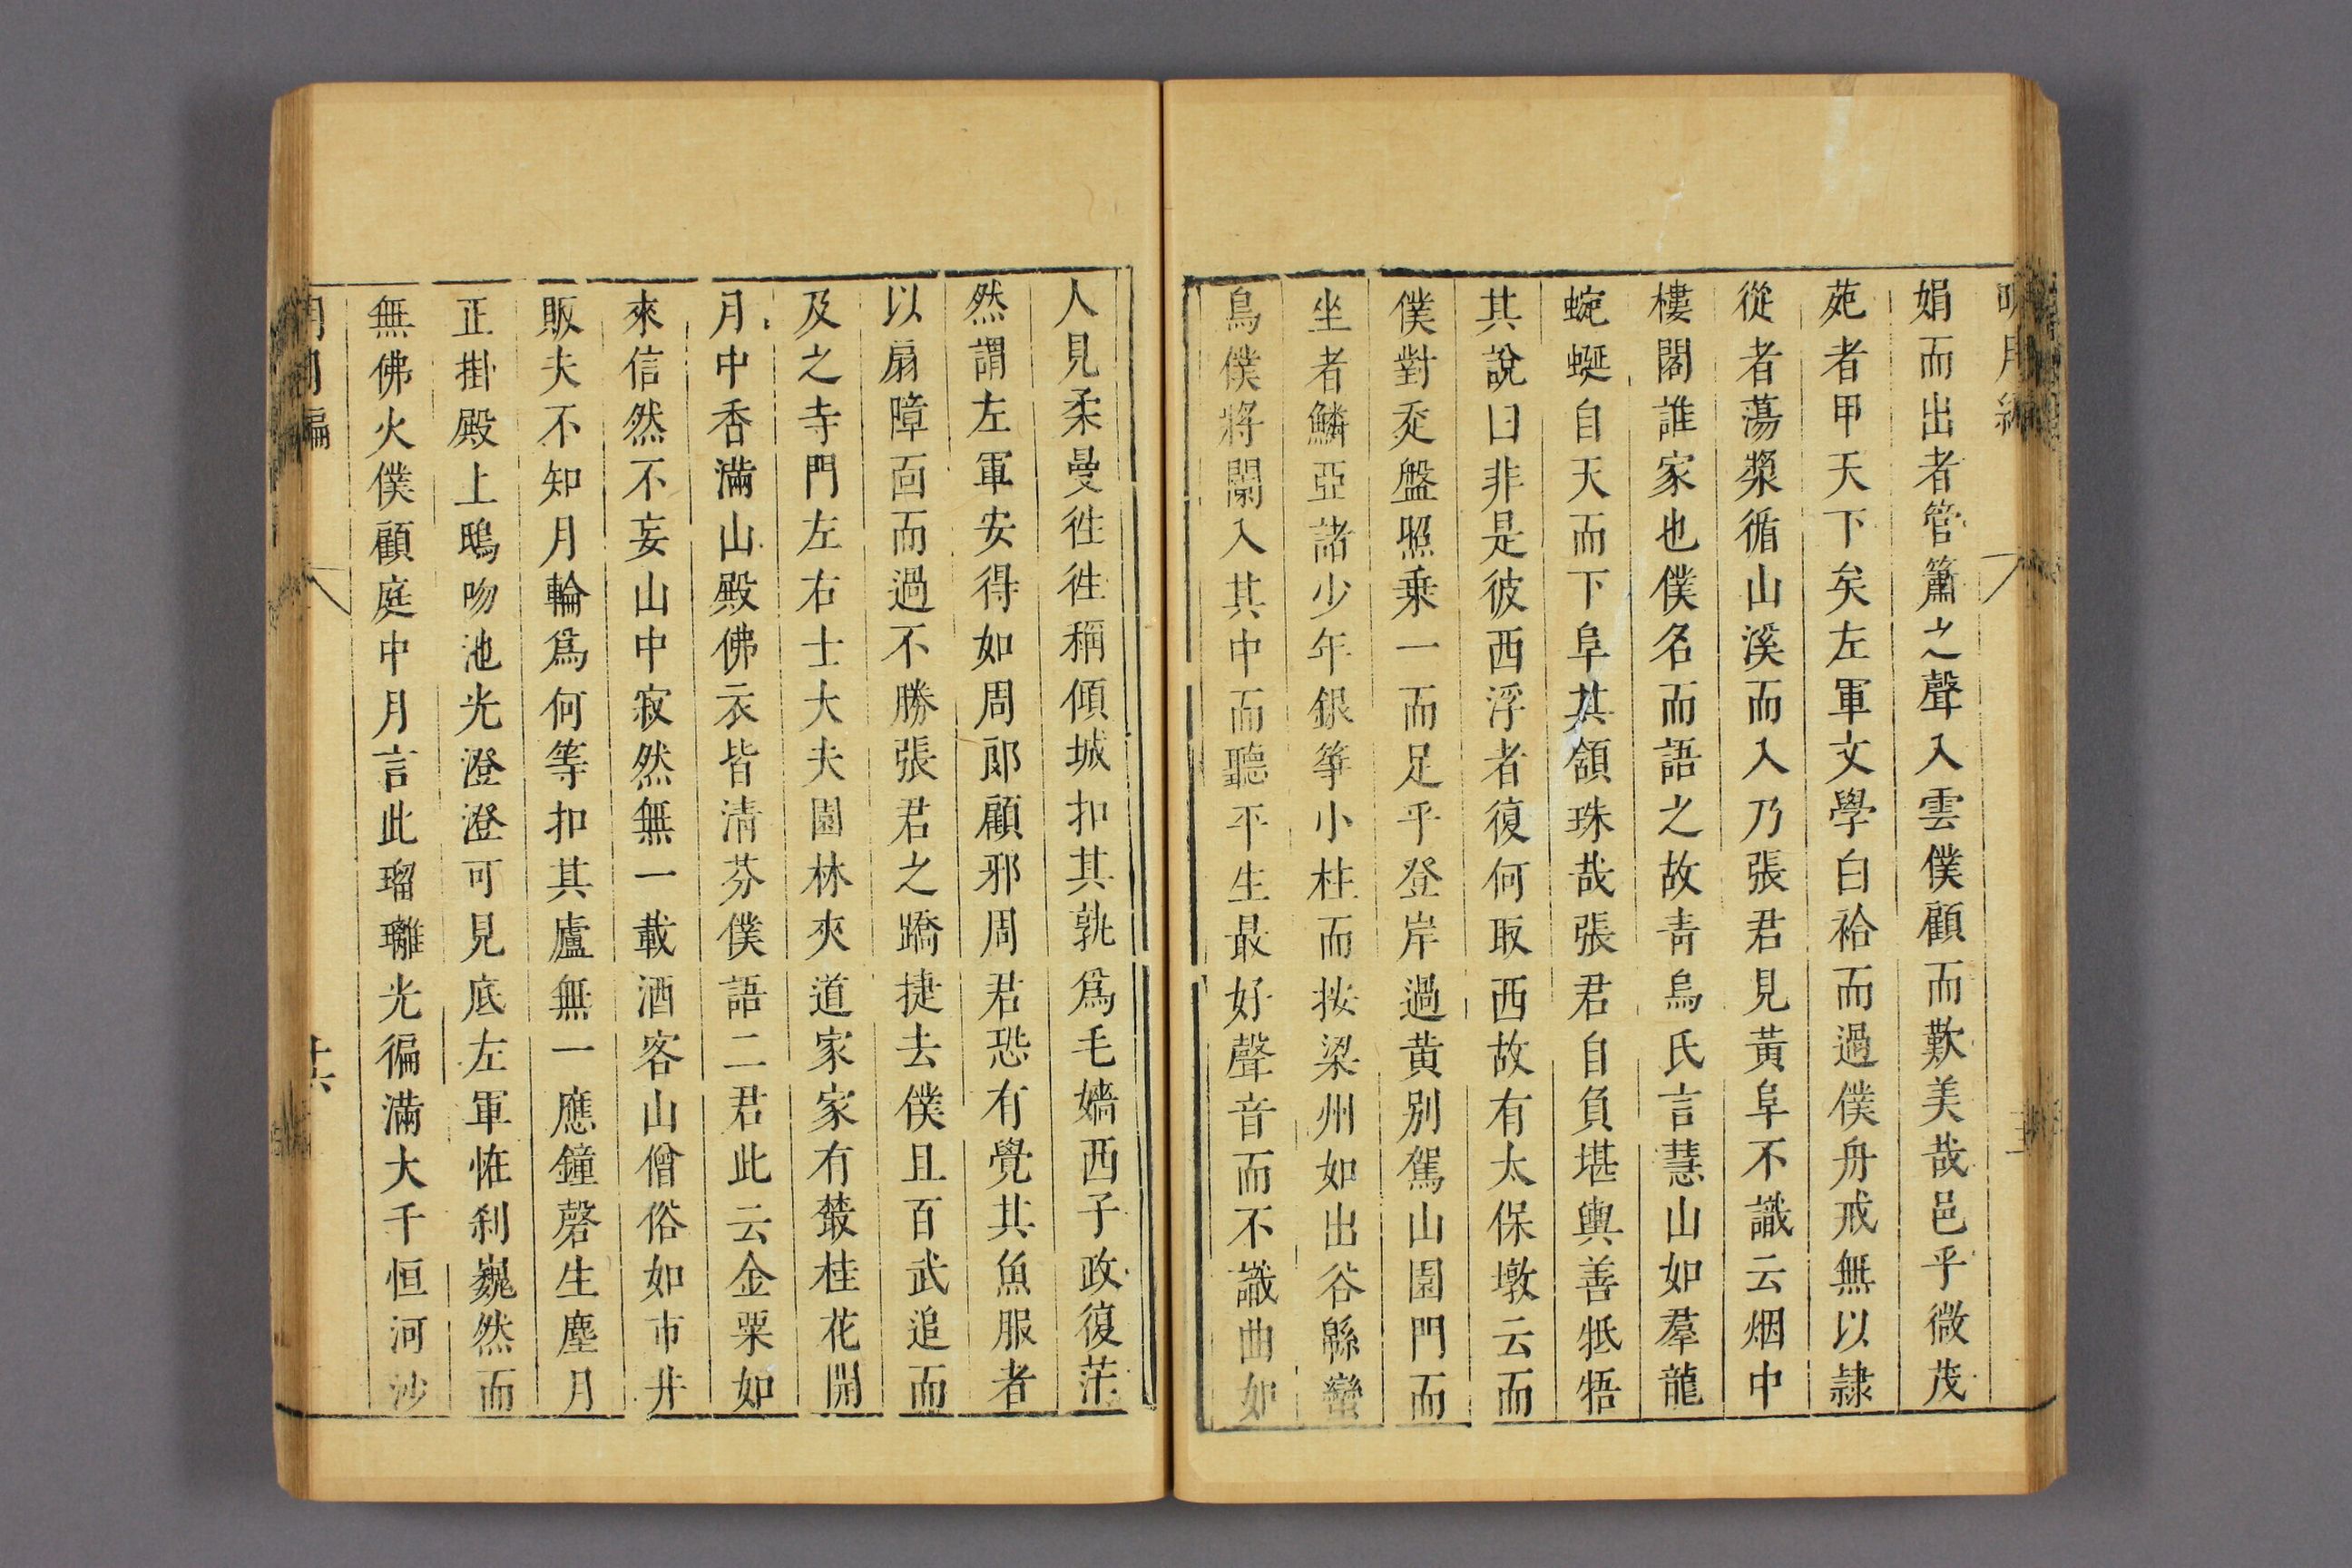 娟而出者管簫之聲入雲僕顧而歎美哉邑乎微茂
苑者甲天下矣左軍文學白袷而過僕舟戒無以隷
從者蕩槳循山溪而入乃張君見黃阜不識云烟中
樓閣誰家也僕名而語之故靑烏氏言慧山如羣龍
蜿蜒自天而下阜其頷珠哉張君自負堪輿善牴牾
其說曰非是彼西浮者復何取西故有太保墩云而
僕對奕盤照乗一而足乎登岸過黃別駕山園門而
坐者鱗亞諸少年銀箏小柱而按梁州如出谷緜蠻
鳥僕將闌入其中而聽平生最好聲音而不識曲如
人見柔曼徃徃稱傾城扣其孰爲毛嬙西子政復茫
然謂左軍安得如周郎顧邪周君恐有覺其魚服者
以扇障面而過不勝張君之蹻捷去僕且百武追而
及之寺門左右士大夫園林夾道家家有叢桂花開
月中香滿山殿佛衣皆清芬僕語二君此云金粟如
來信然不妄山中寂然無一載酒客山僧俗如市井
販夫不知月輪爲何等扣其廬無一應鐘磬生塵月
正掛殿上鴟吻池光澄澄可見底左軍恠刹巍然而
無佛火僕顧庭中月言此瑠璃光徧滿大千恒河沙